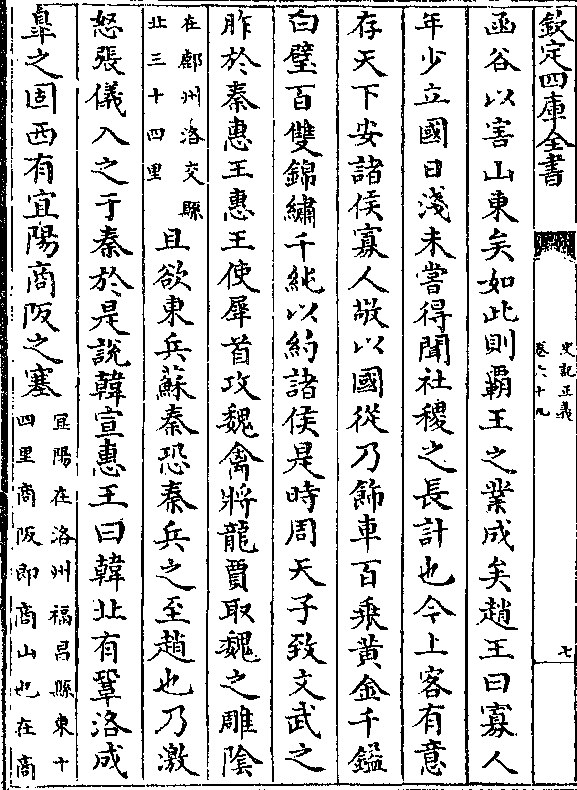 欽定四庫全書
史記正義
卷六十九
七
函谷以害山東矣如此則霸王之業成矣趙王曰寡人
年少立國日淺未嘗得聞社稷之長計也今上客有意
存天下安諸侯寡人敬以國從乃飾車百乘黃金千鎰
白璧百雙錦繡千純以約諸侯是時周天子致文武之
胙於秦惠王惠王使犀首攻魏禽將龍賈取魏之雕陰
在鄜州洛交縣
北三十四里
且欲東兵蘇秦恐秦兵之至趙也乃激
怒張儀入之于秦於是說韓宣惠王曰韓北有鞏洛成
皐之固西有宜陽商阪之塞
宜陽在洛州福昌縣東十
四里商阪即商山也在商